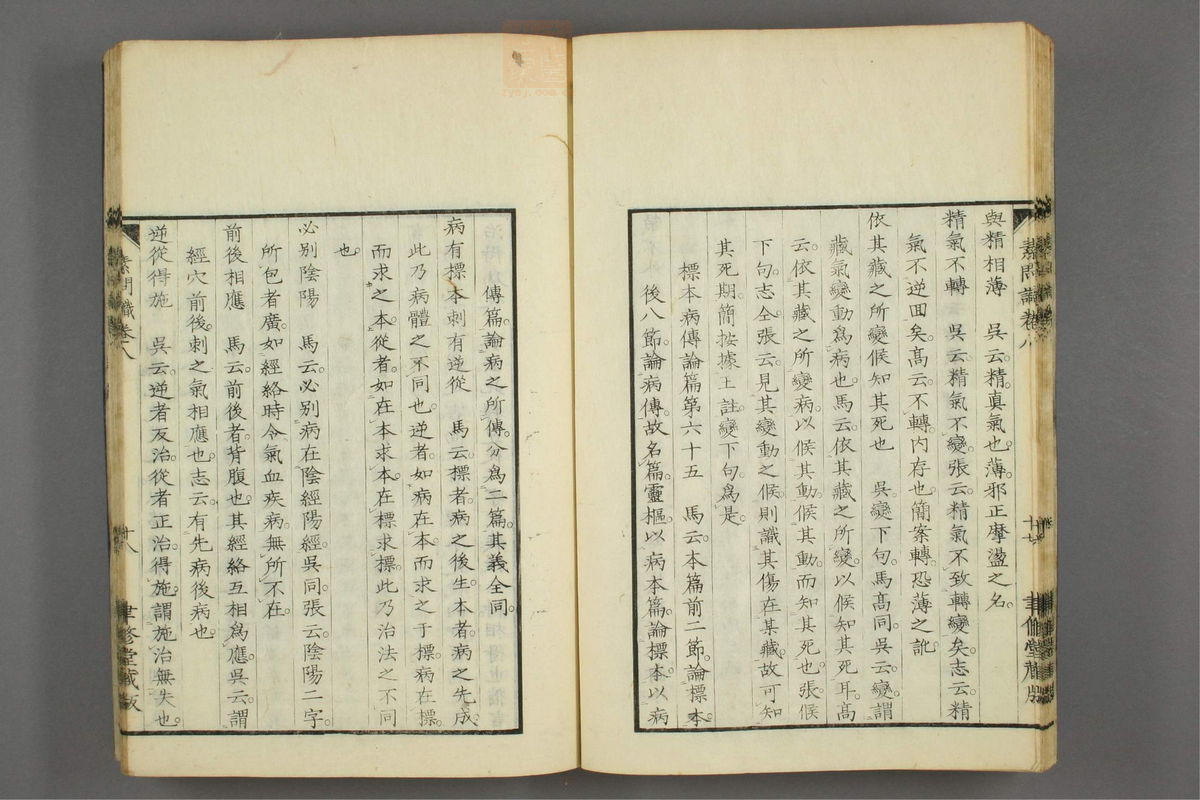 素問識卷八
與精相薄　吳云。精真氣也。薄。邪正摩盪之名。
精氣不轉　吳云。精氣不變。張云。精氣不致轉變矣。志云。精
氣不逆回矣。高云。不轉。內存也。簡案轉。恐薄之訛
依其藏之所變候知其死也　吳。變下句。馬高同。吳云。變。謂
藏氣變動爲病也。馬云。依其藏之所變。以候知其死耳。高
云。依其藏之所變病。以候其動。候其動。而知其死也。張。候
下句。志仝。張云。見其變動之候。則識其傷在某藏。故可知
其死期。簡按據王註。變下句。爲是。
標本病傳論篇第六十五　馬云。本篇前二節。論標本。
後八節。論病傳。故名篇。靈樞。以病本篇。論標本。以病
聿修堂藏版
傳篇。論病之所傳。分爲二篇。其義全同。
病有標本刺有逆從　馬云。標者。病之後生。本者。病之先成。
此乃病體之不同也。逆者。如病在本。而求之于標。病在標。
而求之本。從者。如在本求本。在標求標。此乃治法之不同
也。
必別陰陽　馬云。必別病在陰經陽經。吳同。張云。陰陽二字。
所包者廣。如經絡時令氣血疾病。無所不在。
前後相應　馬云。前後者。背腹也。其經絡互相爲應。吳云。謂
經穴前後。刺之氣相應也。志云。有先病後病也。
逆從得施　吳云。逆者反治。從者正治。得施。謂施治無失也。
素問識卷八
廿八
聿修堂藏版